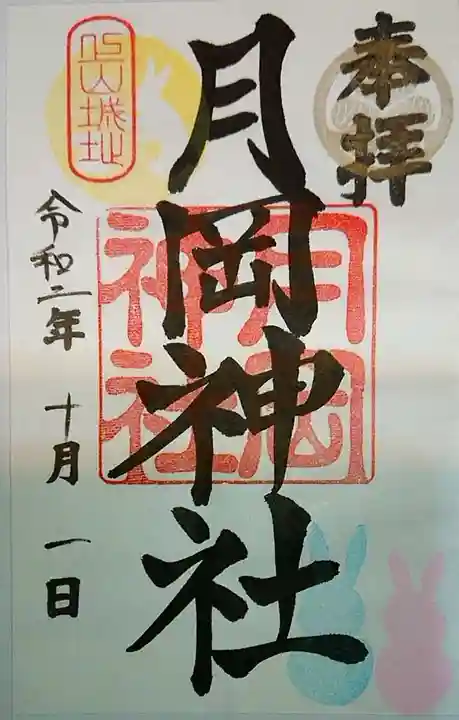 奉拝
月岡神社
月岡神社
上山城址
令和二年 十月 一日